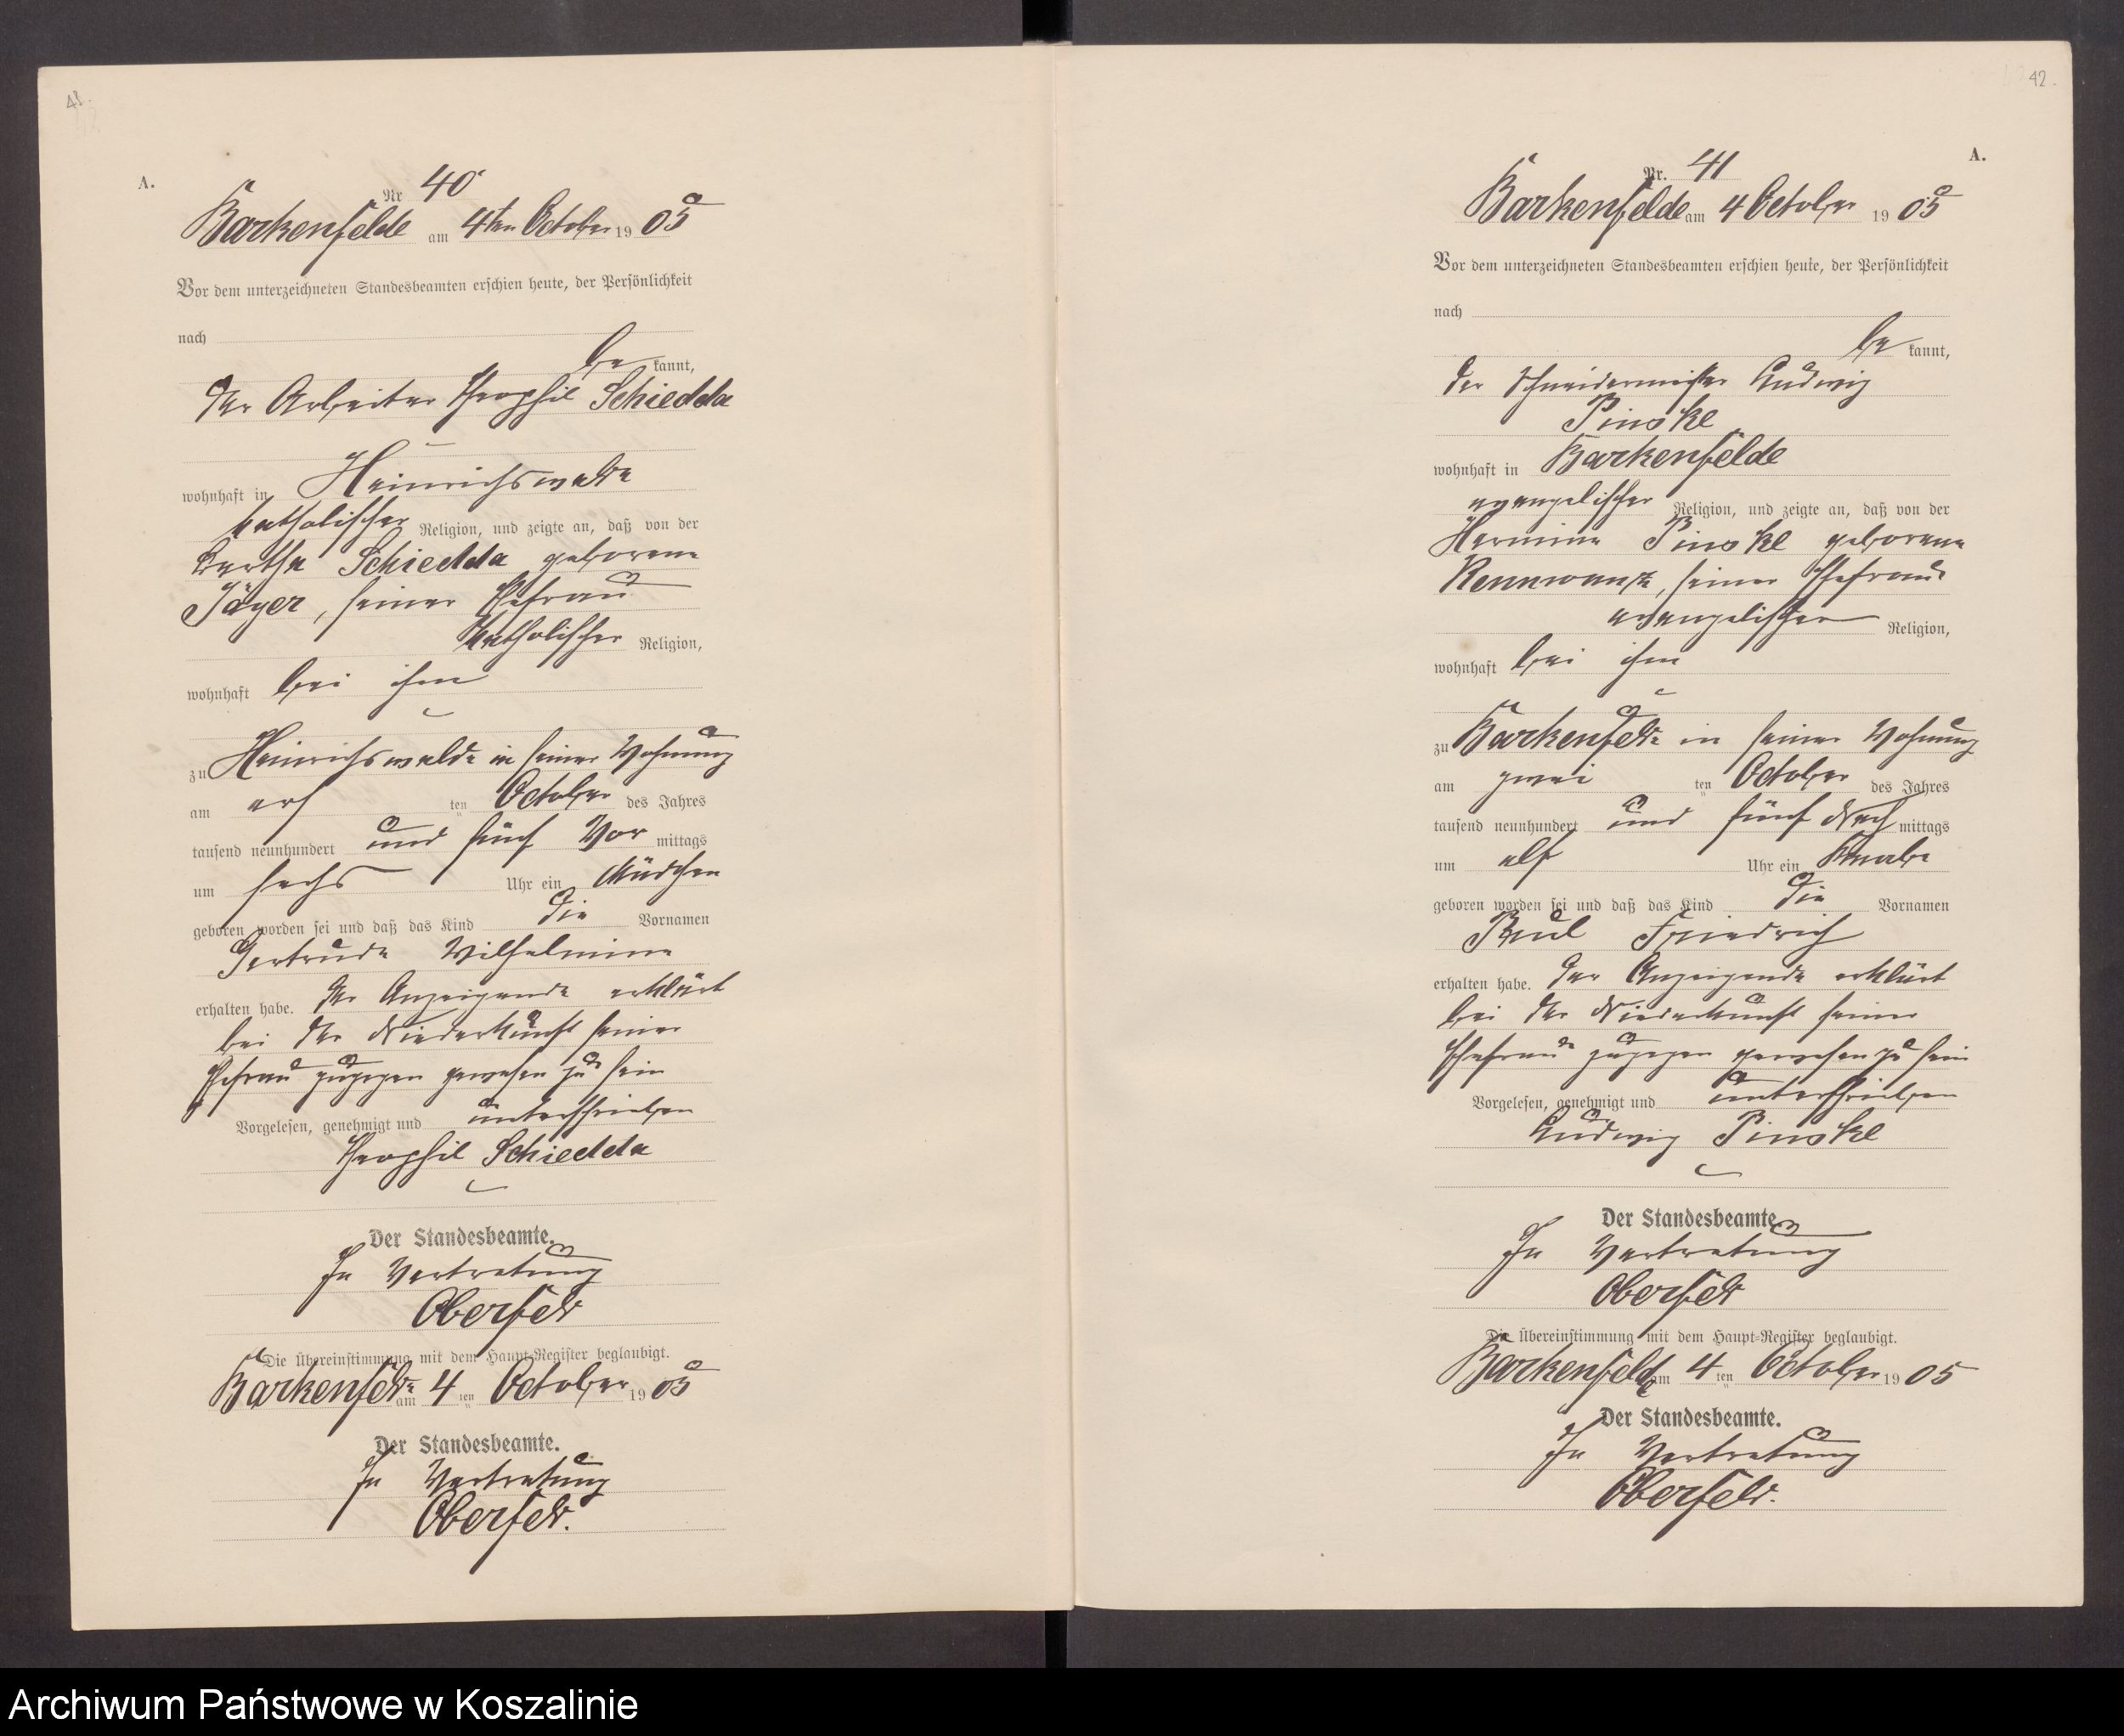 41.
A.
Nr 40
Barkenfelde am 4ten October 1905
Vor dem unterzeichneten Standesbeamten erschien heute, der Persönlichkeit
nach
be kannt,
der Arbeiter Theophil Schiedda
wohnhaft in Heinrichswalde
katholischer Religion, und zeigte an, daß von der
Bertha Schiedda geborene
Jäger, seiner Ehefrau
katholischer Religion,
wohnhaft bei ihm
zu Heinrichswalde in seiner Wohnung
am ersten October des Jahres
tausend neunhundert und fünf Vor mittags
um sechs Uhr ein Mädchen
geboren worden sei und daß das Kind die Vornamen
Gertrude Wilhelmine
erhalten habe. Der Anzeigende erklärt
bei der Niederkunft seiner
Ehefrau zugegen gewesen zu sein
Vorgelesen, genehmigt und unterschrieben
Theophil Schiedda
Der Standesbeamte.
In Vertretung
Oberfeld
Die Übereinstimmung mit dem Haupt-Register beglaubigt.
Barkenfelde am 4 ten October 1905
Der Standesbeamte.
In Vertretung
Oberfeld.
42.
A.
Nr. 41
Barkenfelde am 4 October 1905
Vor dem unterzeichneten Standesbeamten erschien heute, der Persönlichkeit
nach
be kannt,
der Schneidermeister Ludwig
Pinske
wohnhaft in Barkenfelde
evangelischer Religion, und zeigte an, daß von der
Hermine Pinske geborene
seiner Ehefrau
evangelischer Religion,
wohnhaft bei ihm
zu Barkenfelde in seiner Wohnung
am zwei ten October des Jahres
tausend neunhundert und fünf Nach mittags
um elf Uhr ein Knabe
geboren worden sei und daß das Kind die Vornamen
Paul Friedrich
erhalten habe. Der Anzeigende erklärt
bei der Niederkunft seiner
Ehefrau zugegen gewesen zu sein
Vorgelesen, genehmigt und unterschrieben
Ludwig Pinske
Der Standesbeamte
In Vertretung
Oberfeld
Die Übereinstimmung mit dem Haupt-Register beglaubigt.
Barkenfelde am 4 ten October 1905
Der Standesbeamte.
In Vertretung
Oberfeld.
Archiwum Państwowe w Koszalinie